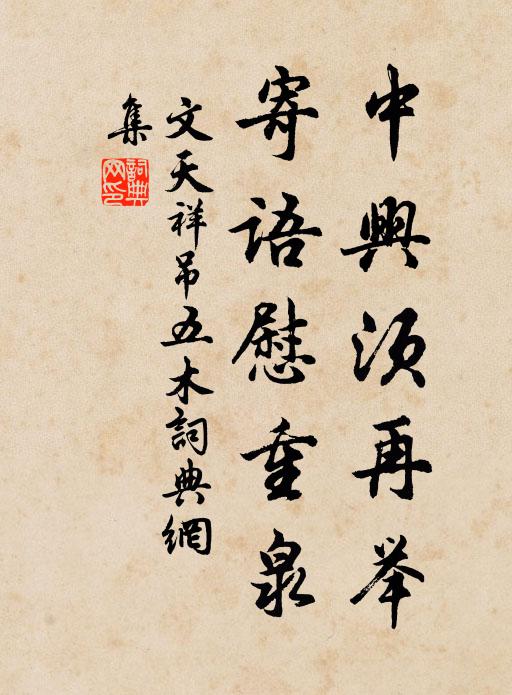 中興須再举
寄語慰重泉
文天祥吊五木詞典網
集
詞典網印